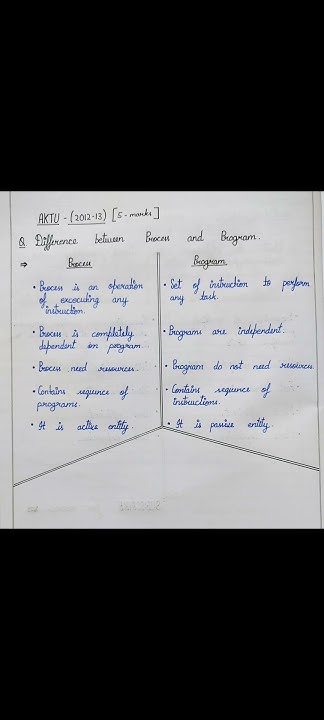 AKTU - (2012-13) [5-marks]
Q Difference between Process and Program.
⇒ Process
• Process is an operation
of excecuting any
instruction.
• Process is completely
dependent on program.
• Process need resources.
• Contains sequence of
programs.
• It is active entity.
Program
• Set of instruction to perform
any task.
• Programs are independent.
• Program do not need resources.
• Contains sequence of
instructions.
• It is passive entity.